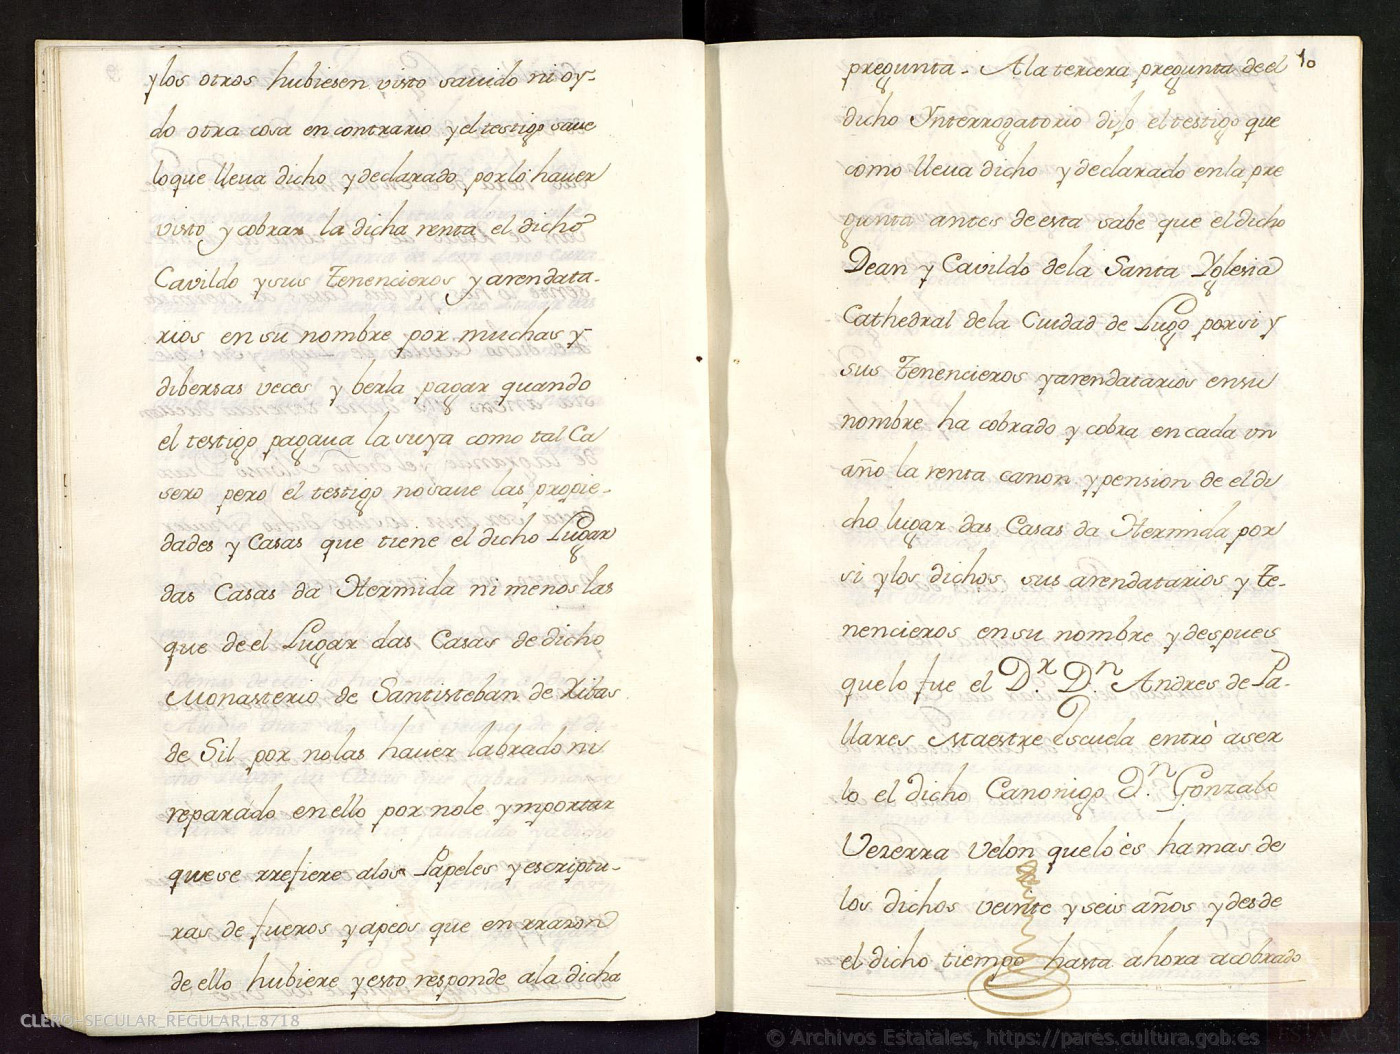 y los otros hubiesen visto sauido ni oy-
do otra cosa en contrario y el testigo saue
lo que lleua dicho y declarado por lo hauer
visto y cobrar la dicha renta el dicho
Cavildo y sus tenencieros y arendata-
rios en su nombre por muchas y
dibersas veces y berla pagar quando
el testigo pagaua la suya como tal Ca
sero pero el testigo no saue las propie-
dades y Casas que tiene el dicho Lugar
das Casas da Hermida ni menos las
que de el Lugar das Casas de dicho
Monasterio de Santisteban de Ribas
de Sil por no las hauer labrado ni
reparado en ello por no le ymportar
que se rrefiere a los Papeles y escriptu-
ras de fueros y apeos que en rrazon
de ello hubiere y esto responde a la dicha
10
pregunta - A la tercera pregunta de el
dicho Ynterrogatorio dijo el testigo que
como lleua dicho y declarado en la pre
gunta antes de esta sabe que el dicho
Dean y Cavildo de la Santa Yglesia
Cathedral de la Ciudad de Lugo por si y
sus tenencieros y arendatarios en su
nombre ha cobrado y cobra en cada vn
año la renta canon y pension de el di
cho lugar das Casas da Hermida por
si y los dichos sus arendatarios y te-
nencieros en su nombre y despues
que lo fue el D.r D.n Andres de Pa-
llares Maestre Escuela entró a ser
lo el dicho Canonigo D.n Gonzalo
Vezerra Velon que lo ès ha mas de
los dichos veinte y seis años y desde
el dicho tiempo hasta ahora a cobrado
CLERO-SECULAR_REGULAR,L.8718
© Archivos Estatales, https://pares.cultura.gob.es
ARCHIVOS
ESTATALES